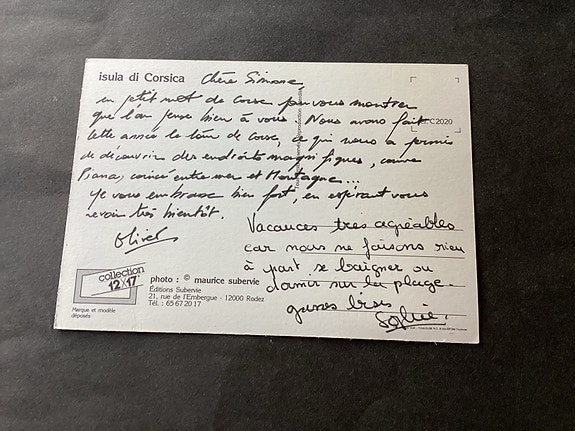 isula di Corsica
Chère Simone
un petit mot de Corse pour vous montrer
que l'on pense bien à vous. Nous avons fait
cette année le tour de Corse, ce qui nous a permis
de découvrir des endroits magnifiques, comme
Piana, coincé entre mer et Montagne...
Je vous embrasse bien fort, en espérant vous
revoir très bientôt.
Olivier
C2020
Vacances très agréables
car nous ne faisons rien
à part se baigner ou
dormir sur la plage.
grosses bises
Sophie.
collection
12x17
Marque et modèle
déposés
photo : © maurice subervie
Éditions Subervie
21, rue de l'Embergue - 12000 Rodez
Tél. : 65 67 20 17